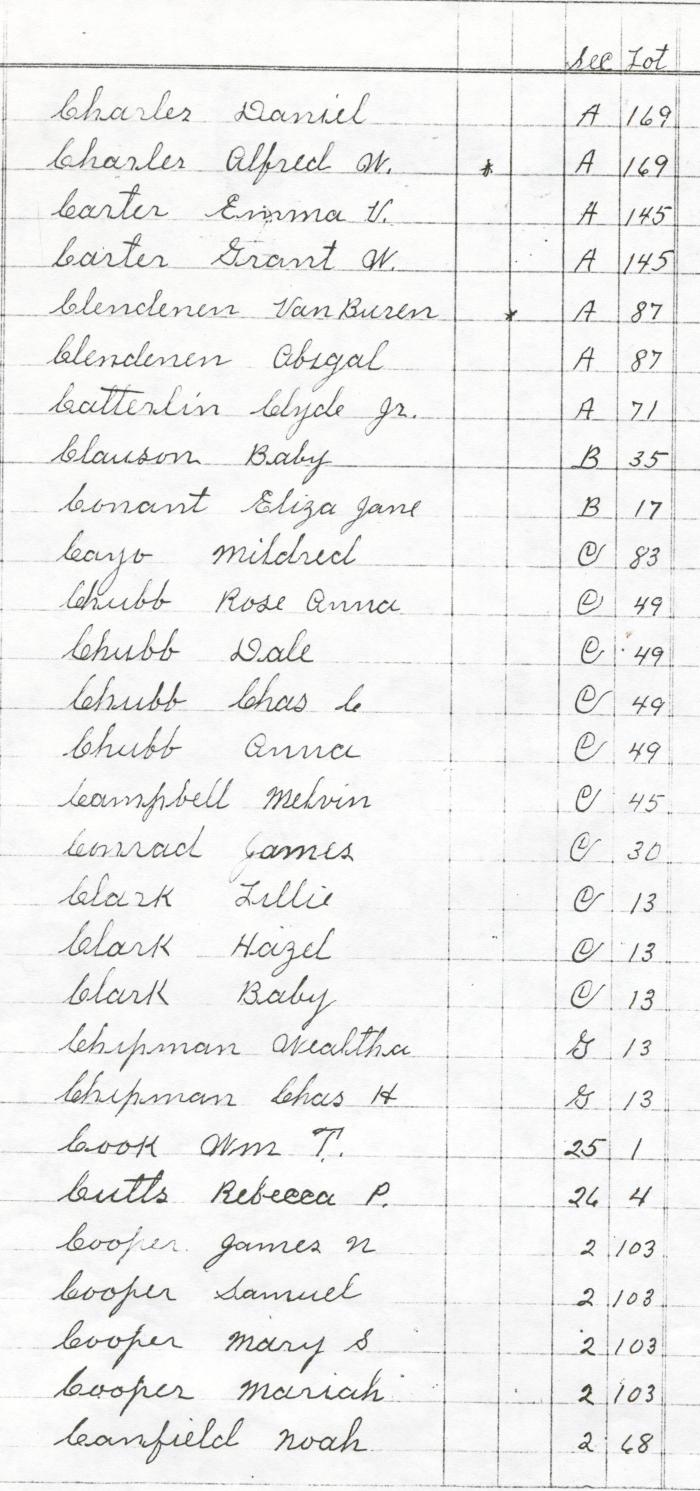 Sec Lot
Charles Daniel A 169
Charles Alfred W. * A 169
Carter Emma V. A 145
Carter Grant W. A 145
Clendenen Van Buren * A 87
Clendenen Abigal A 87
Catterlin Clyde Jr. A 71
Clauson Baby B 35
Conant Eliza Jane B 17
Cayo Mildred C 83
Chubb Rose Anna C 49
Chubb Dale C 49
Chubb Chas C C 49
Chubb Anna C 49
Campbell Melvin C 45
Conrad James C 30
Clark Lillie C 13
Clark Hazel C 13
Clark Baby C 13
Chipman Wealtha G 13
Chipman Chas H G 13
Cook Wm T. 25 1
Cutts Rebecca P. 26 4
Cooper James N 2 103
Cooper Samuel 2 103
Cooper Mary S 2 103
Cooper Mariah 2 103
Canfield Noah 2 68